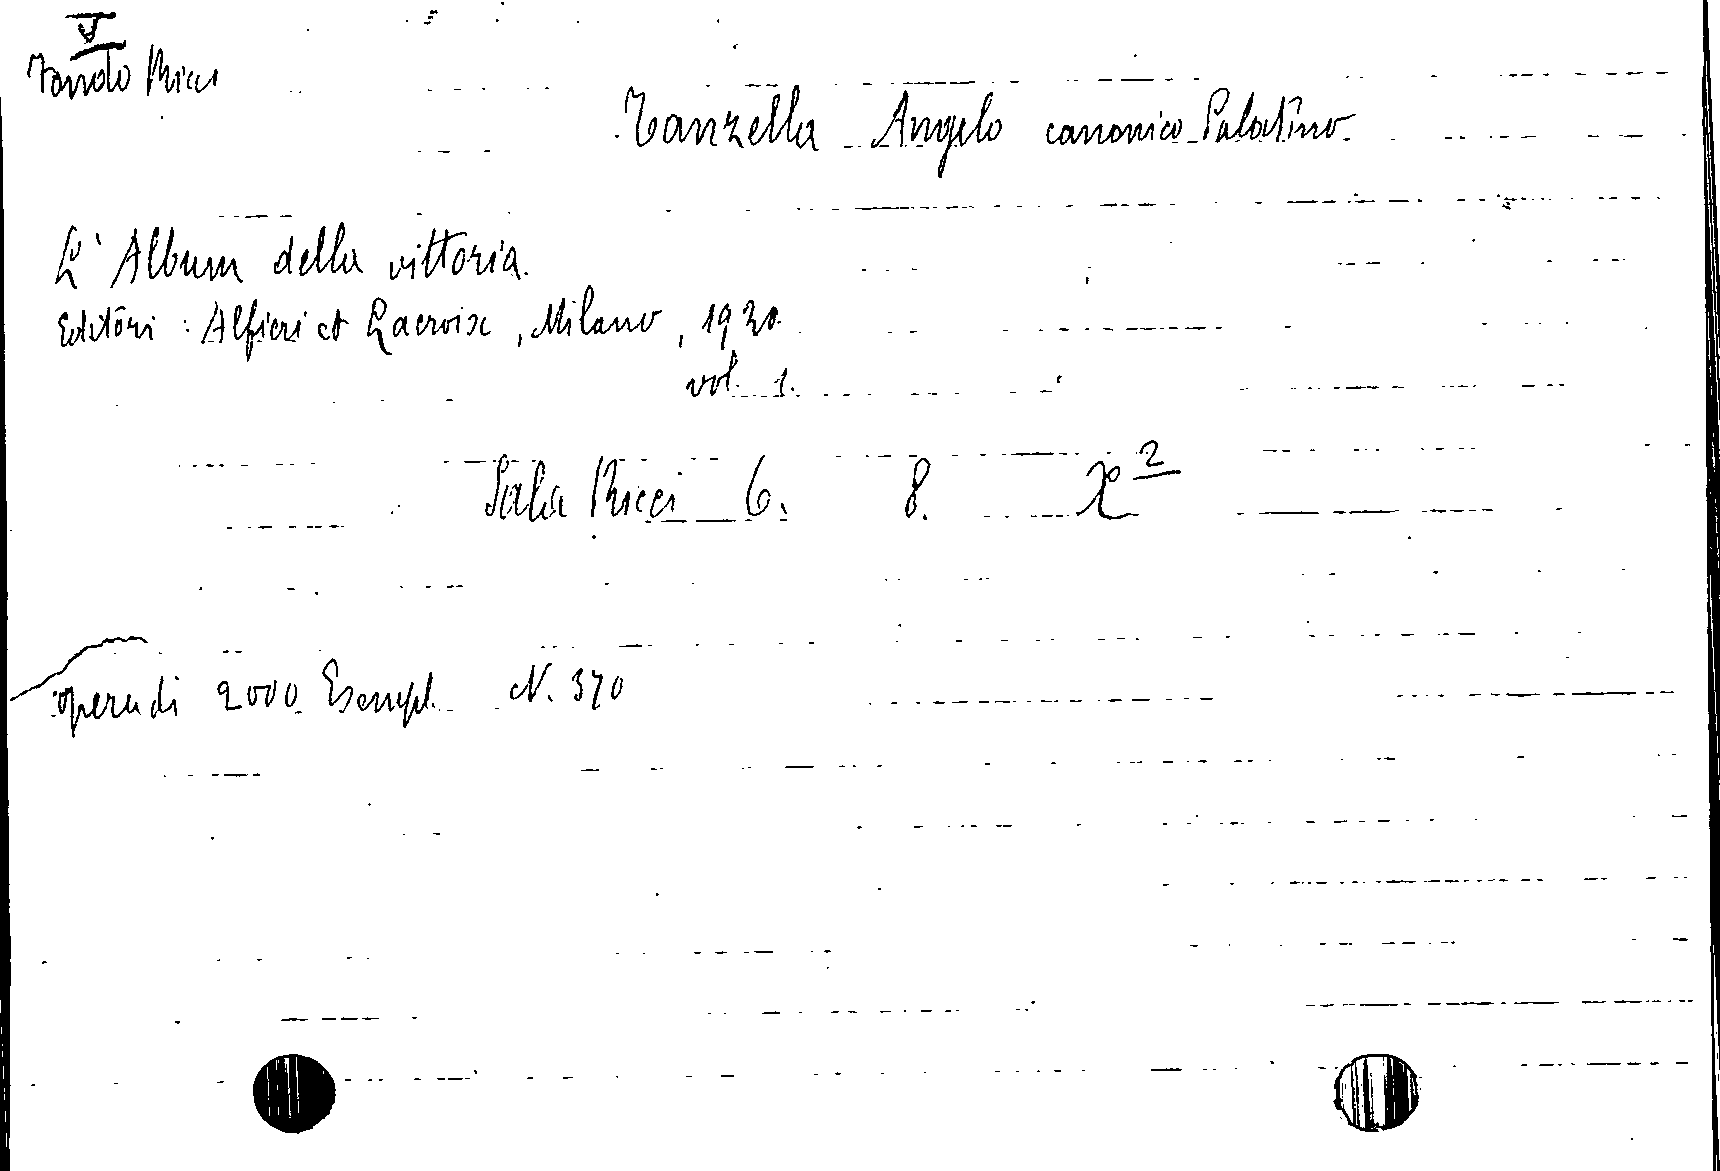 V
Fondo Ricci
Tanzella Angelo canonico Palatino
L'Album della vittoria.
Editori: Alfieri et Lacroix, Milano, 1920.
vol. 1.
Sala Ricci 6. 8. X 2
opera di 2000 Esempl. N. 370